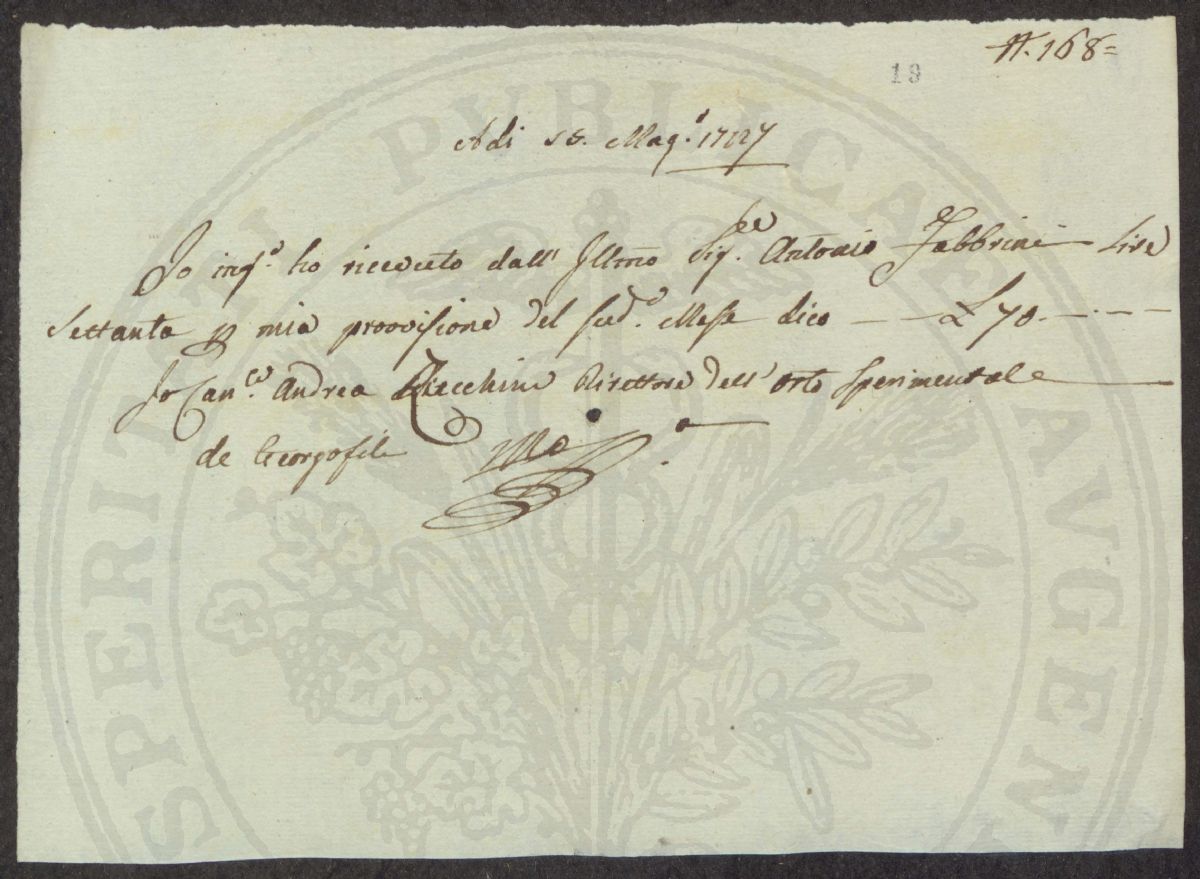 N. 168=
19
Adi Mag.º
Io inf.º ho ricevuto dall' Illmo Sig.re Antonio Fabbrini Lire
Settanta p mia provvisione del sud.º Mese dico — £ 70. — . — —
Io Can.co Andrea Zucchini Direttore dell' Orto sperimentale
de Georgofili Mo
PROSPERITATI PVBLICAE AVGEN